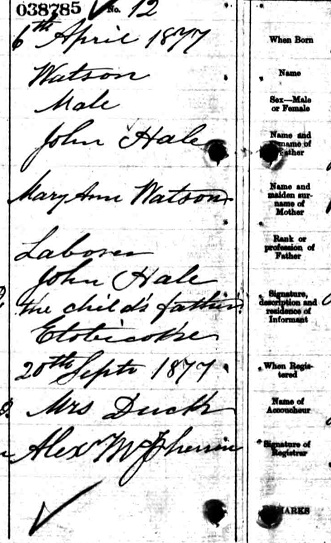 038785 No. 12
6th April 1877
When Born
Watson
Name
Male
Sex—Male
or Female
John Hale
Name and
surname of
Father
Mary Ann Watson
Name and
maiden sur-
name of
Mother
Laborer
Rank or
profession of
Father
John Hale
the child's father
Etobicoke
Signature,
description and
residence of
Informant
20th Sept 1877
When Regis-
tered
Mrs Duck
Name of
Accoucheur
Alex
Signature of
Registrar
REMARKS